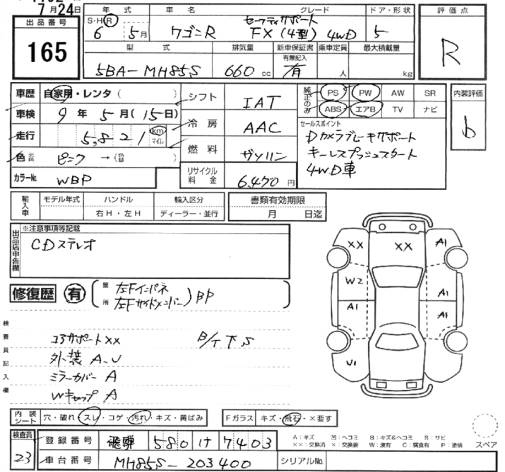 7月24日
出品番号
165
年式
車名
グレード
ドア・形状
評価点
S・H・R
6年 5月
ワゴンR
セーフティサポート
FX(4型) 4WD
5
R
型式
排気量
新車保証書
有無記入
乗車定員
最大積載量
5BA-MH85S
660cc
有
人
kg
車歴
自家用・レンタ・( )
シフト
IAT
純正のみ
PS
PW
AW
SR
内装評価
車検
9年 5月(15日)
ABS
エアB
TV
ナビ
冷房
AAC
D
走行
5,821
km
マイル
セールスポイント
Dカメラブレーキサポート
キーレスプッシュスタート
4WD車
燃料
ガソリン
色
ピンク→( )
リサイクル料金
6,470円
カラーNo.
WBP
輸入車
モデル年式
ハンドル
輸入区分
書類有効期限
右H・左H
ディーラー・並行
月 日迄
出品店申告欄
※注意事項等記載
CDステレオ
修復歴
有
箇所
左Fインパネ
左Fサイドメンバー
BP
検査員記入欄
コアサポートXX
外装A-U
ミラーカバーA
WキャップA
B/ド下S
XX
XX
A1
W2
A1
A1
A1
V1
スペア
内装シート
穴・破れ・スレ・コゲ・汚れ・キズ・黄ばみ
Fガラス
キズ・飛石・×要す
検査員
23
登録番号
飛騨 580 け 7403
車台番号
MH85S-203400
シリアルNo.
A:キズ
U:ヘコミ
B:キズ&ヘコミ
S:サビ
XX:交換済
X:要交換
W:波有
C:腐食有
P:塗装